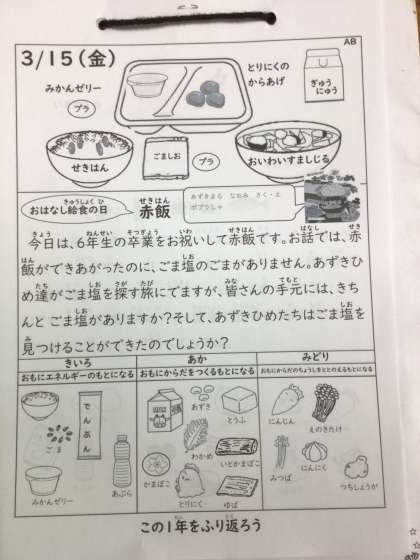 AB
3/15(金)
みかんゼリー
プラ
とりにくの
からあげ
ぎゅう
にゅう
せきはん
ごましお
プラ
おいわいすましじる
きゅうしょく ひ
おはなし給食の日
せきはん
赤飯
あずきまる なおみ さく・え
ポプラしゃ
きょう ねんせい そつぎょう いわ せきはん はなし せき
今日は、6年生の卒業をお祝いして赤飯です。お話では、赤
はん しお
飯ができあがったのに、ごま塩のごまがありません。あずきひ
たち しお さが たび みな てもと
め達がごま塩を探す旅にでますが、皆さんの手元には、きち
しお しお
んと ごま塩がありますか?そして、あずきひめたちはごま塩を
み
見つけることができたのでしょうか?
きいろ
おもにエネルギーのもとになる
ごま
でんぷん
みかんゼリー
あぶら
あか
おもにからだをつくるもとになる
あずき
とうふ
わかめ
かまぼこ
いとかまぼこ
とりにく
ゆば
みどり
おもにからだのちょうしをととのえるもとになる
にんじん
えのきたけ
みつば
にんにく
つちしょうが
ねん かえ
この1年をふり返ろう